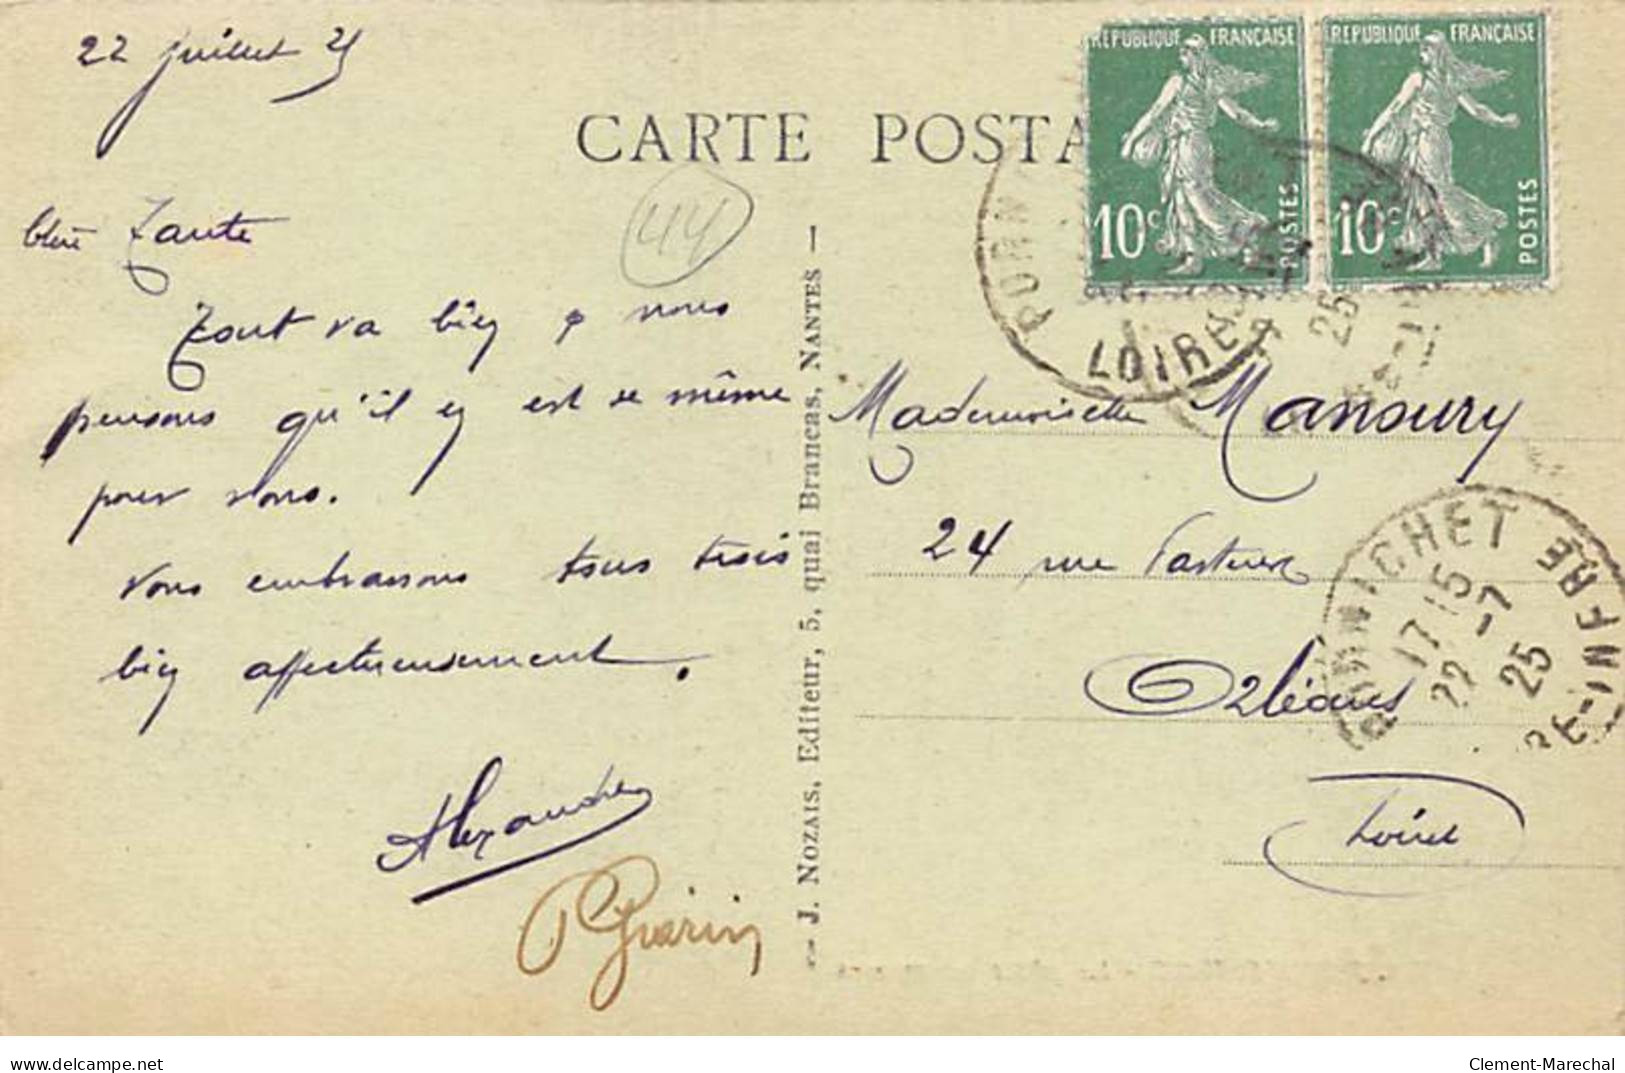 22 juillet 25
CARTE POSTA
44
Chère Tante
Tout va bien & nous
pensons qu'il en est de même
pour vous.
Vous embrassons tous trois
bien affectueusement.
Alexandre
Guérin
J. NOZAIS, Editeur, 5, quai Brancas, NANTES
REPUBLIQUE FRANÇAISE
10c
POSTES
REPUBLIQUE FRANÇAISE
10c
POSTES
PORN
LOIRE
25
Mademoiselle Manoury
24 rue Pasteur
Orléans
Loiret
PORNICHET
17 15
22 -7
25
RE-INFRE
delcampe.net
Clement-Marechal